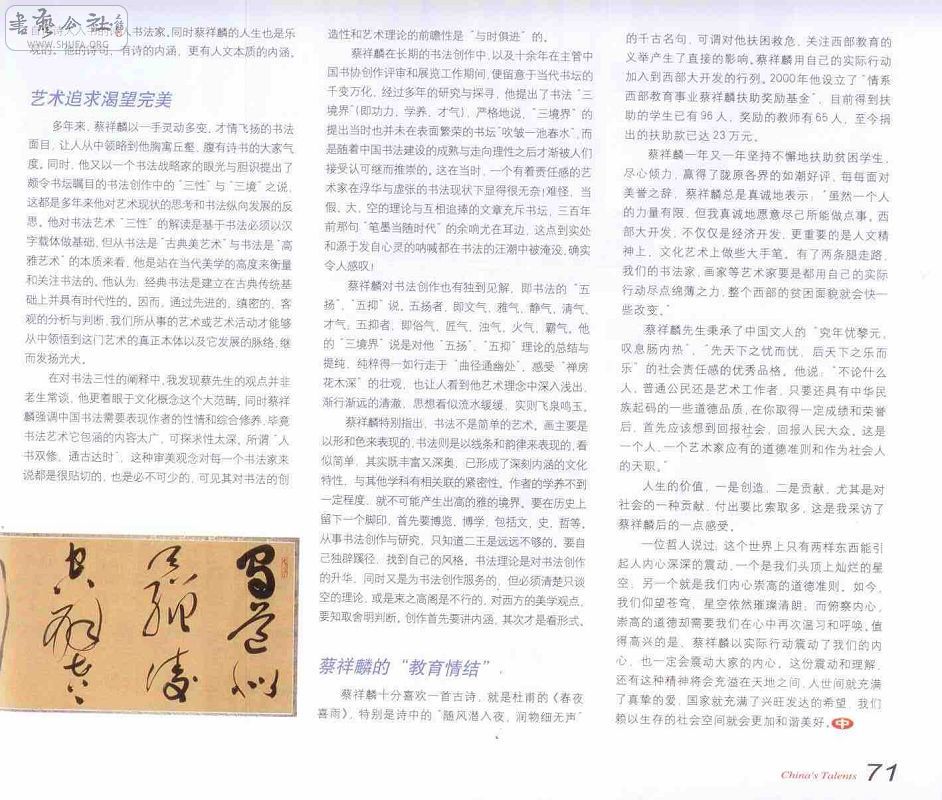 书艺公社
WWW.SHUFA.ORG
书法家,同时蔡祥麟的人生也是乐
观的。他的诗句，有诗的内涵，更有人文本质的内涵。
艺术追求渴望完美
多年来，蔡祥麟以一手灵动多变、才情飞扬的书法
面目，让人从中领略到他胸寓丘壑、腹有诗书的大家气
度。同时，他又以一个书法战略家的眼光与胆识提出了
颇令书坛瞩目的书法创作中的“三性”与“三境”之说，
这都是多年来他对艺术现状的思考和书法纵向发展的反
思。他对书法艺术“三性”的解读是基于书法必须以汉
字载体做基础，但从书法是“古典美艺术”与书法是“高
雅艺术”的本质来看，他是站在当代美学的高度来衡量
和关注书法的。他认为，经典书法是建立在古典传统基
础上并具有时代性的。因而，通过先进的、缜密的、客
观的分析与判断，我们所从事的艺术或艺术活动才能够
从中领悟到这门艺术的真正本体以及它发展的脉络，继
而发扬光大。
在对书法三性的阐释中，我发现蔡先生的观点并非
老生常谈，他更着眼于文化概念这个大范畴。同时蔡祥
麟强调中国书法需要表现作者的性情和综合修养，毕竟
书法艺术它包涵的内容太广，可探求性太深。所谓“人
书双修，通古达时”，这种审美观念对每一个书法家来
说都是很贴切的，也是必不可少的，可见其对书法的创
造性和艺术理论的前瞻性是“与时俱进”的。
蔡祥麟在长期的书法创作中，以及十余年在主管中
国书协创作评审和展览工作期间，便留意于当代书坛的
千变万化，经过多年的研究与探寻，他提出了书法“三
境界”（即功力、学养、才气）。严格地说，“三境界”的
提出当时也并未在表面繁荣的书坛“吹皱一池春水”，而
是随着中国书法建设的成熟与走向理性之后才渐被人们
接受认可继而推崇的。这在当时，一个有着责任感的艺
术家在浮华与虚张的书法现状下显得很无奈！难怪，当
假、大、空的理论与互相追捧的文章充斥书坛，三百年
前那句“笔墨当随时代”的余响尤在耳边，这点到实处
和源于发自心灵的呐喊都在书法的汪潮中被淹没，确实
令人感叹！
蔡祥麟对书法创作也有独到见解，即书法的“五
扬”、“五抑”说。五扬者，即文气、雅气、静气、清气、
才气；五抑者，即俗气、匠气、浊气、火气、霸气。他
的“三境界”说是对他“五扬”、“五抑”理论的总结与
提纯，纯粹得一如行走于“曲径通幽处”，感受“禅房
花木深”的壮观，也让人看到他艺术理念中深入浅出、
渐行渐远的清澈，思想看似流水缓缓，实则飞泉鸣玉。
蔡祥麟特别指出，书法不是简单的艺术。画主要是
以形和色来表现的，书法则是以线条和韵律来表现的，看
似简单，其实既丰富又深奥，已形成了深刻内涵的文化
特性，与其他学科有相关联的紧密性。作者的学养不到
一定程度，就不可能产生出高的雅的境界。要在历史上
留下一个脚印，首先要博览，博学，包括文、史、哲等。
从事书法创作与研究，只知道二王是远远不够的。要自
己独辟蹊径，找到自己的风格。书法理论是对书法创作
的升华，同时又是为书法创作服务的，但必须清楚只谈
空的理论，或是束之高阁是不行的，对西方的美学观点，
要知取舍明判断。创作首先要讲内涵，其次才是看形式。
蔡祥麟的“教育情结”
蔡祥麟十分喜欢一首古诗，就是杜甫的《春夜
喜雨》，特别是诗中的“随风潜入夜，润物细无声”
的千古名句，可谓对他扶困救危、关注西部教育的
义举产生了直接的影响。蔡祥麟用自己的实际行动
加入到西部大开发的行列。2000年他设立了“情系
西部教育事业蔡祥麟扶助奖励基金”，目前得到扶
助的学生已有96人，奖励的教师有65人，至今捐
出的扶助款已达23万元。
蔡祥麟一年又一年坚持不懈地扶助贫困学生，
尽心倾力，赢得了陇原各界的如潮好评，每每面对
美誉之辞，蔡祥麟总是真诚地表示：“虽然一个人
的力量有限，但我真诚地愿意尽己所能做点事。西
部大开发，不仅仅是经济开发，更重要的是人文精
神上、文化艺术上做些大手笔。有了两条腿走路，
我们的书法家、画家等艺术家要是都用自己的实际
行动尽点绵薄之力，整个西部的贫困面貌就会快一
些改变。”
蔡祥麟先生秉承了中国文人的“穷年忧黎元，
叹息肠内热”、“先天下之忧而忧，后天下之乐而
乐”的社会责任感的优秀品格。他说，“不论什么
人，普通公民还是艺术工作者，只要还具有中华民
族起码的一些道德品质，在你取得一定成绩和荣誉
后，首先应该想到回报社会，回报人民大众。这是
一个人、一个艺术家应有的道德准则和作为社会人
的天职。”
人生的价值，一是创造，二是贡献，尤其是对
社会的一种贡献，付出要比索取多，这是我采访了
蔡祥麟后的一点感受。
一位哲人说过，这个世界上只有两样东西能引
起人内心深深的震动，一个是我们头顶上灿烂的星
空，另一个就是我们内心崇高的道德准则。如今，
我们仰望苍穹，星空依然璀璨清朗，而俯察内心，
崇高的道德却需要我们在心中再次温习和呼唤。值
得高兴的是，蔡祥麟以实际行动震动了我们的内
心，也一定会震动大家的内心。这份震动和理解，
还有这种精神将会充溢在天地之间，人世间就充满
了真挚的爱，国家就充满了兴旺发达的希望，我们
赖以生存的社会空间就会更加和谐美好。中
China's Talents 71